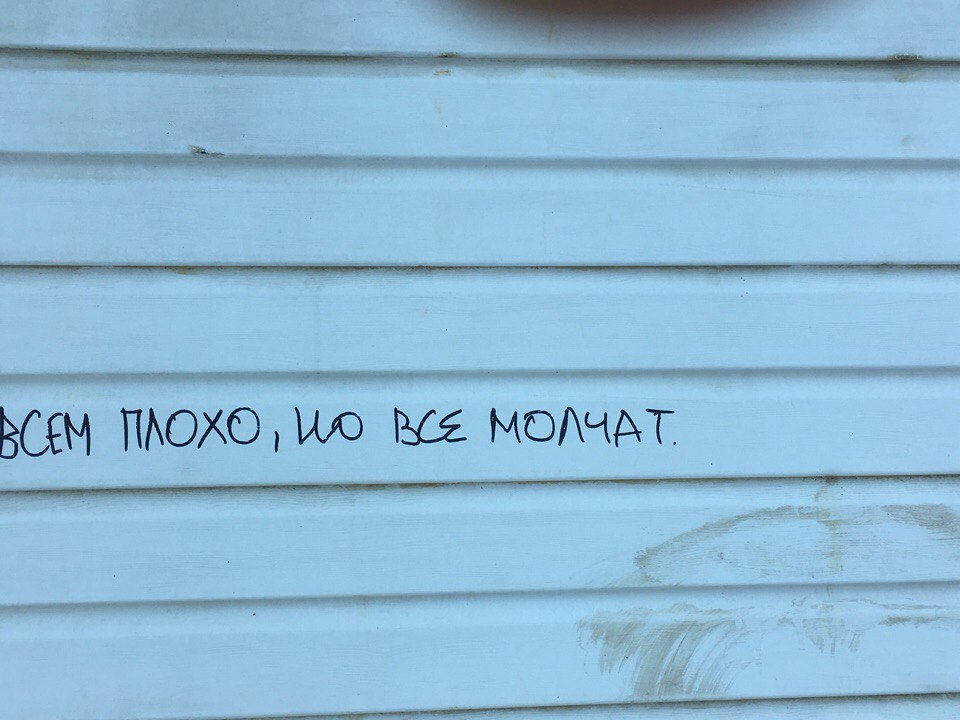 ВСЕМ ПЛОХО, НО ВСЕ МОЛЧАТ.